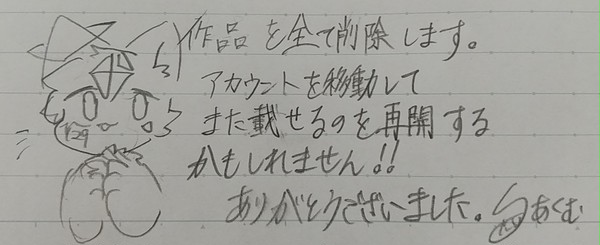 作品を全て削除します。
アカウントを移動して
また載せるのを再開する
かもしれません!!
ありがとうございました。
あくむ